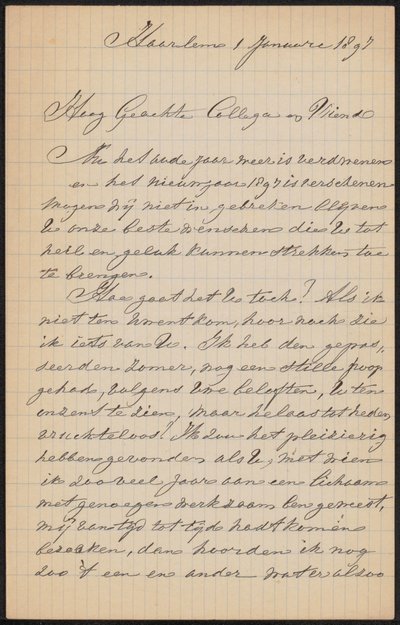 Haarlem 1 Januari 1897
Hoog Geachte Collega en Vriend
Nu het oude jaar weer is verdwenen
en het nieuwjaar 1897 is verschenen
mogen wij niet in gebreken blijven
U onze beste wenschen die U tot
heil en geluk kunnen strekken toe
te brengen.
Hoe gaat het U toch? Als ik
niet ten Uwent kom, hoor noch zie
ik iets van U. Ik heb den gepas„
seerden zomer, nog een stille hoop
gehad, volgens Uwe beloften, U ten
onzent te zien, maar helaas tot heden
vruchteloos! Ik zou het pleizierig
hebben gevonden als U, met wien
ik zoo veel jaar aan een lichaam
met genoegen werkzaam ben geweest,
mij van tijd tot tijd hadt komen
bezoeken, dan hoorden ik nog
zoo 't een en ander wat er alzoo